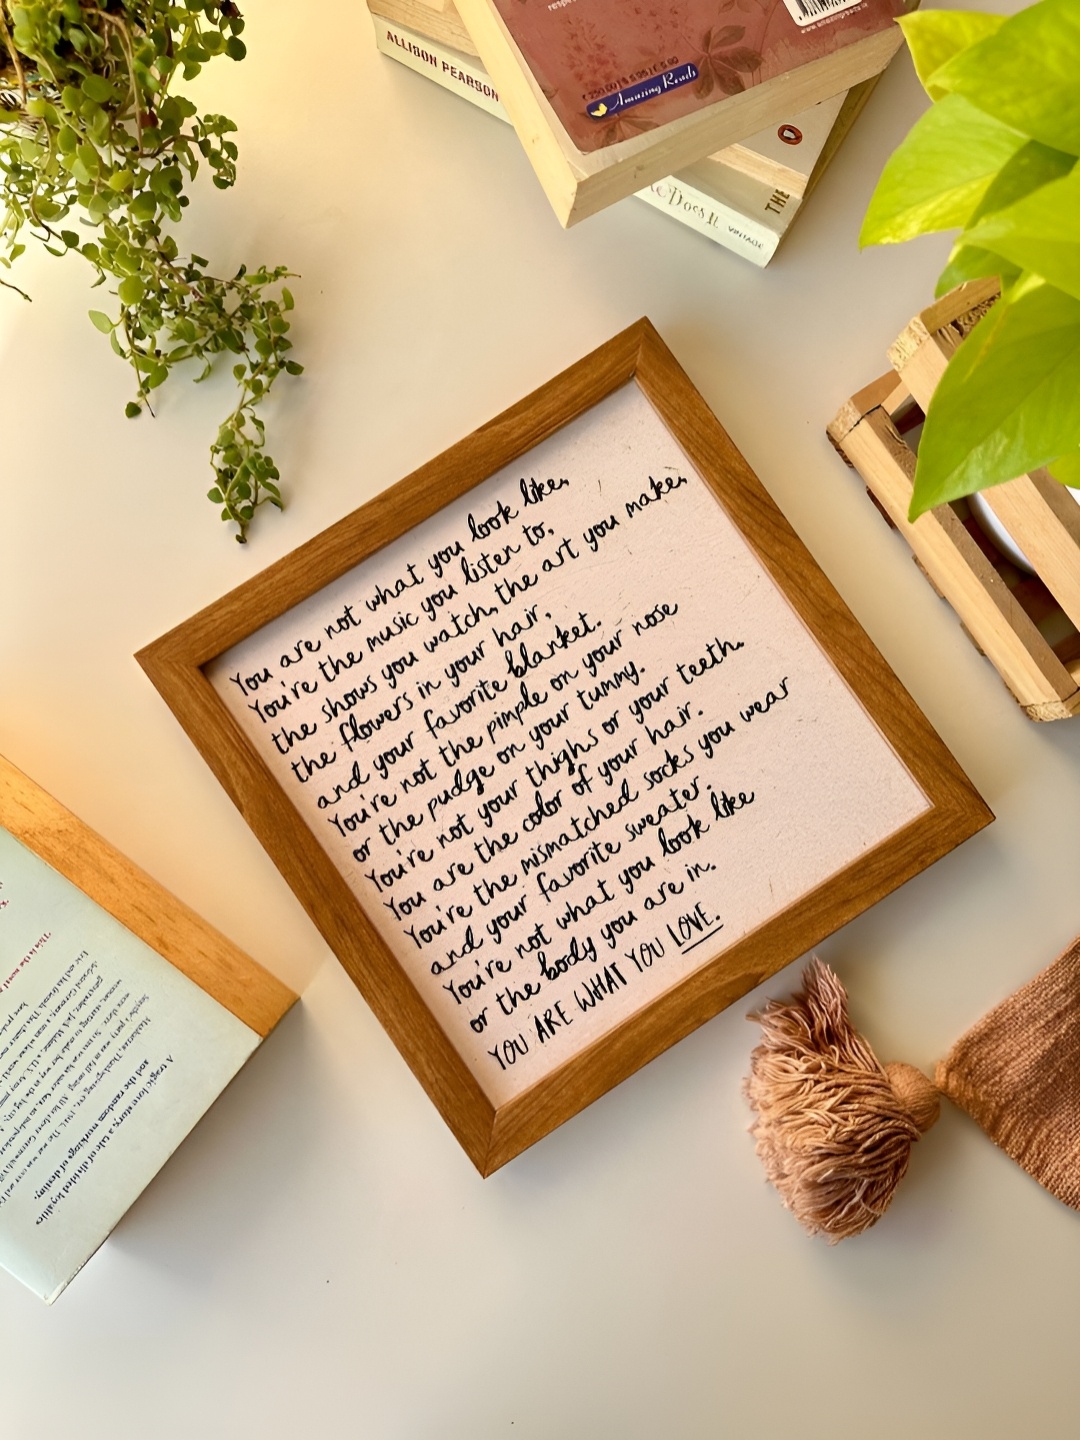 ALLISON PEARSON
Amazing Reads
THE
Does It
VINTAGE
You are not what you look like,
You're the music you listen to,
the shows you watch, the art you make,
the flowers in your hair,
and your favorite blanket.
You're not the pimple on your nose
or the pudge on your tummy.
You're not your thighs or your teeth.
You are the color of your hair.
You're the mismatched socks you wear
and your favorite sweater.
You're not what you look like
or the body you are in.
YOU ARE WHAT YOU LOVE.
A tragic love story, a tale of divided loyalties
and the random workings of destiny.